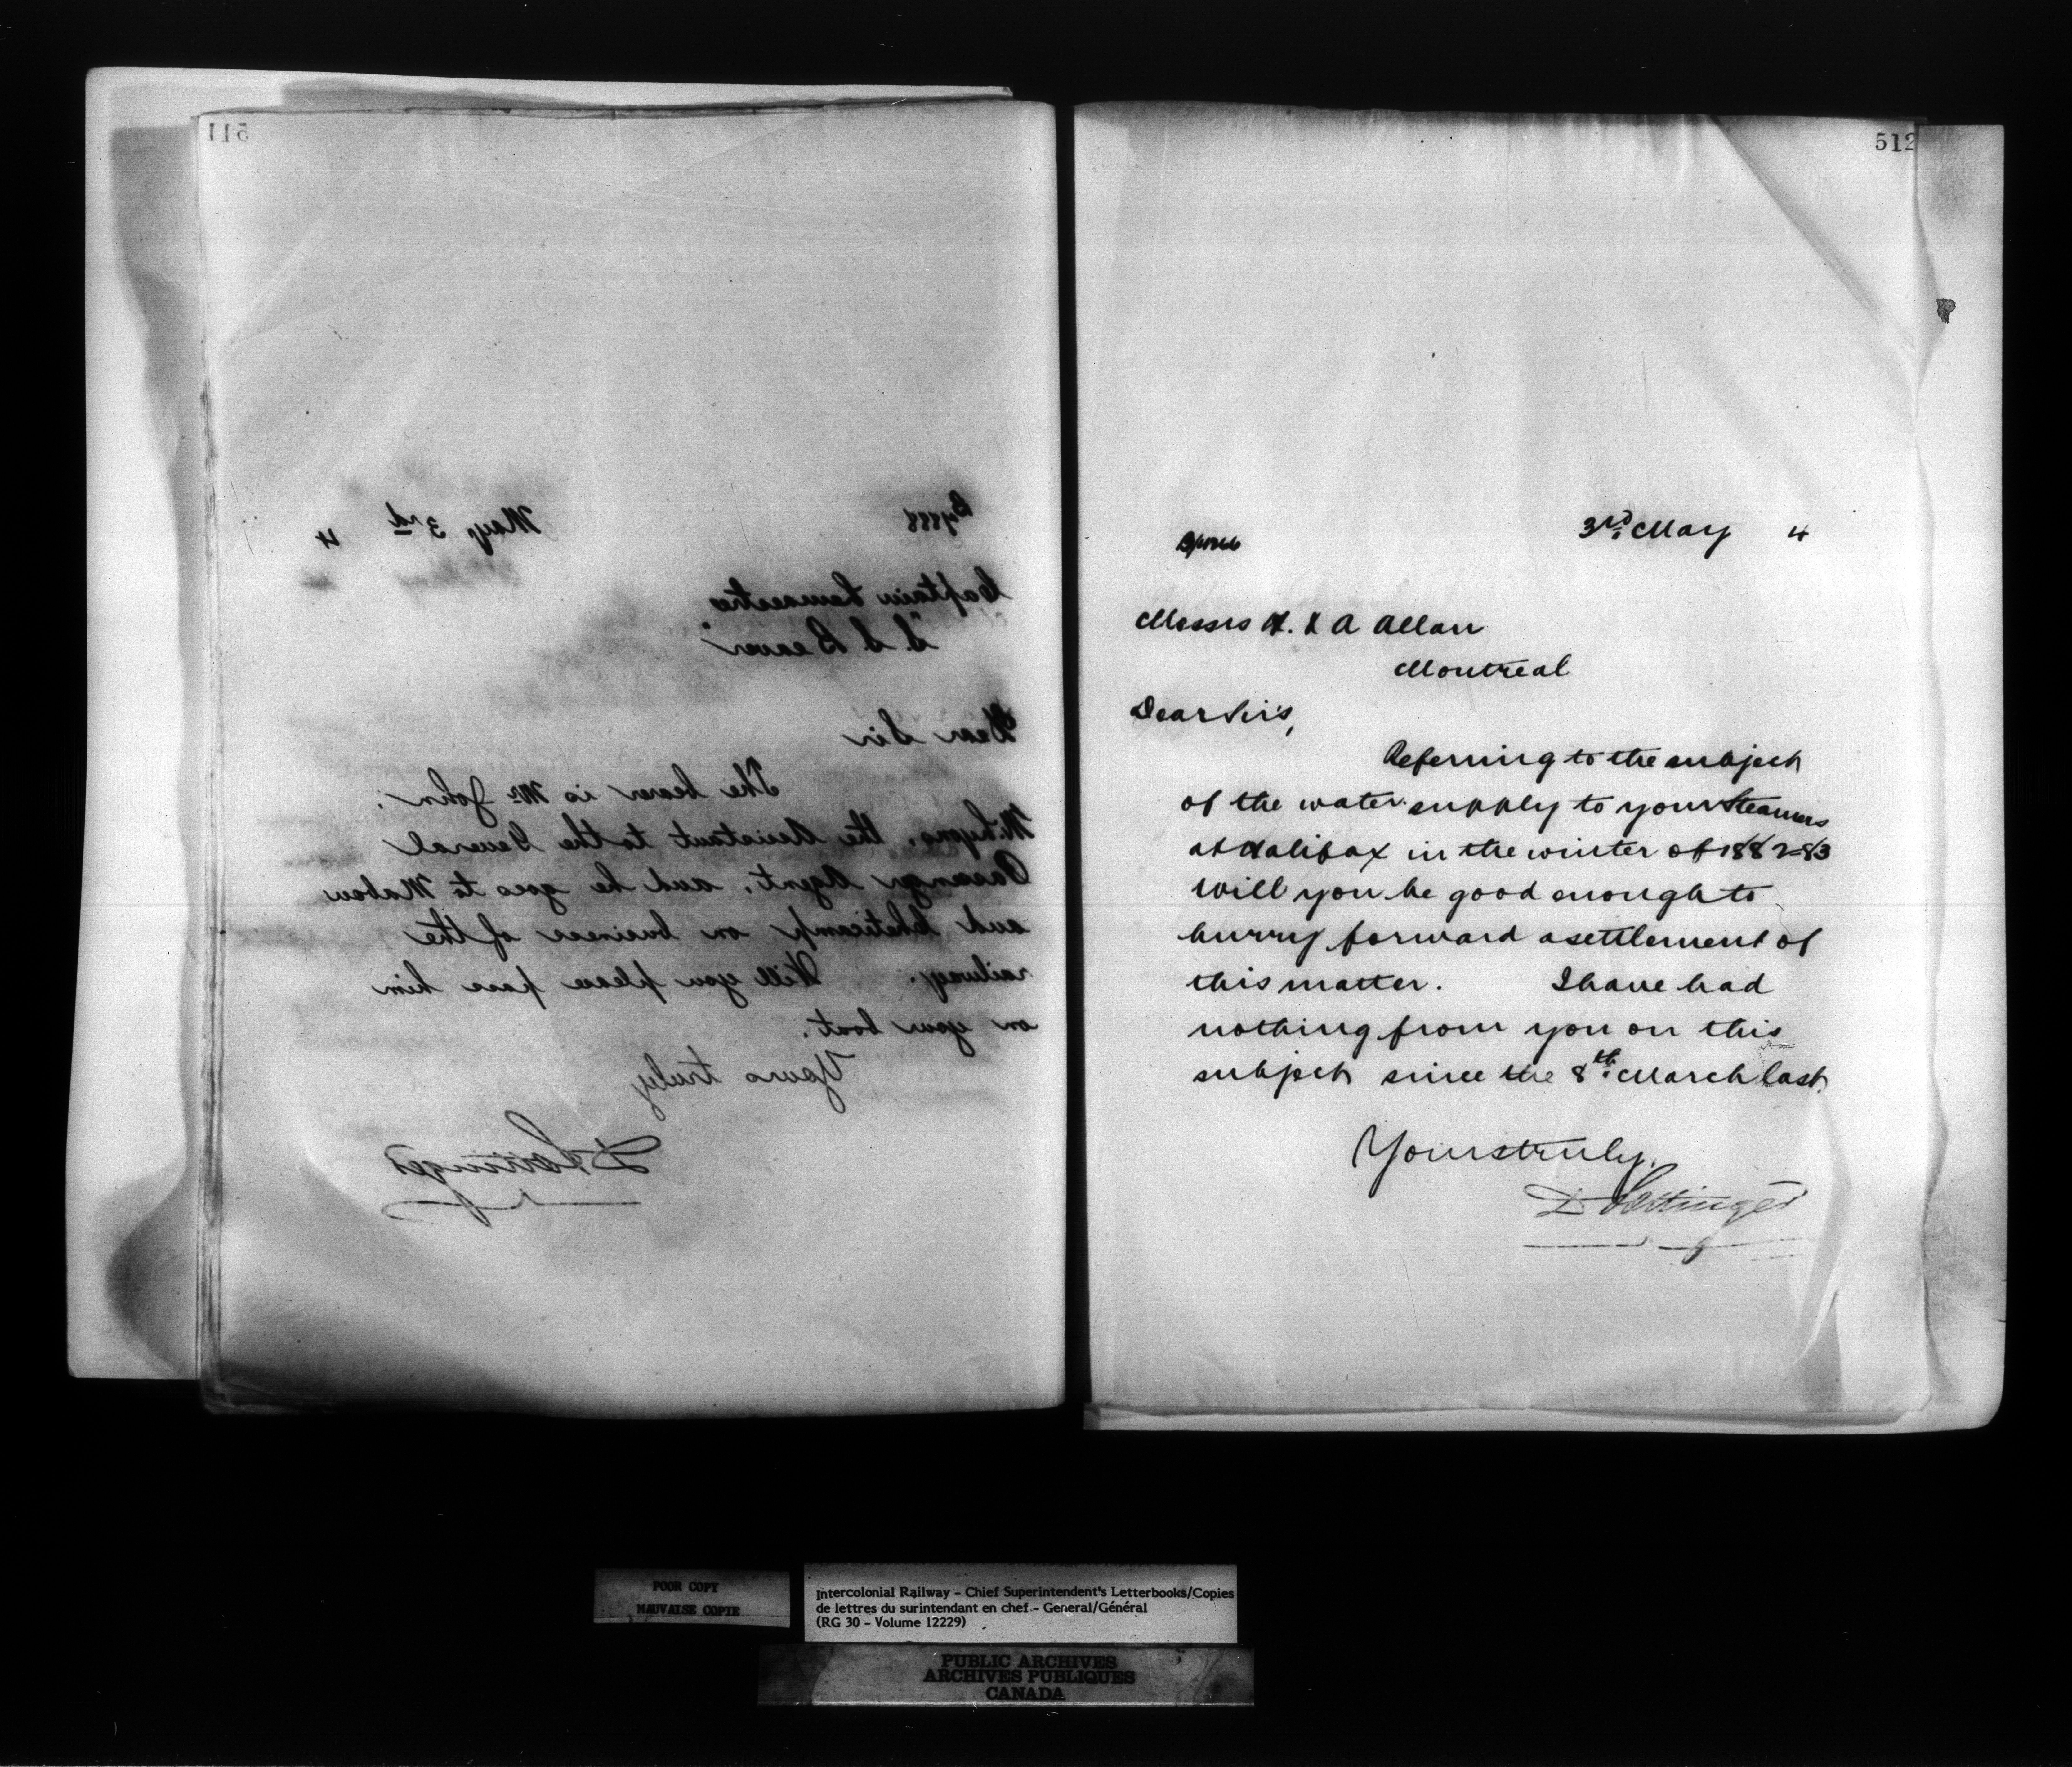 511
May 3rd 4
Captain Lemaestre
"S. S Beaver"
Dear Sir
The bearer is Mr John
the Assistant to the General
Passenger Agent, and he goes to Mabou
and Cheticamp on business of the
railway. Will you please pass him
on your boat.
Yours truly
D Pottinger
512
3rd May 4
Messrs H. & A Allan
Montreal
Dear Sirs,
Referring to the subject
of the water supply to your Steamers
at Halifax in the winter of 1882-83
will you be good enough to
hurry forward a settlement of
this matter. I have had
nothing from you on this
subject since the 8th March last
Yours truly,
D Pottinger
POOR COPY
MAUVAISE COPIE
Intercolonial Railway - Chief Superintendent's Letterbooks/Copies
de lettres du surintendant en chef - General/Général
(RG 30 - Volume 12229)
PUBLIC ARCHIVES
ARCHIVES PUBLIQUES
CANADA